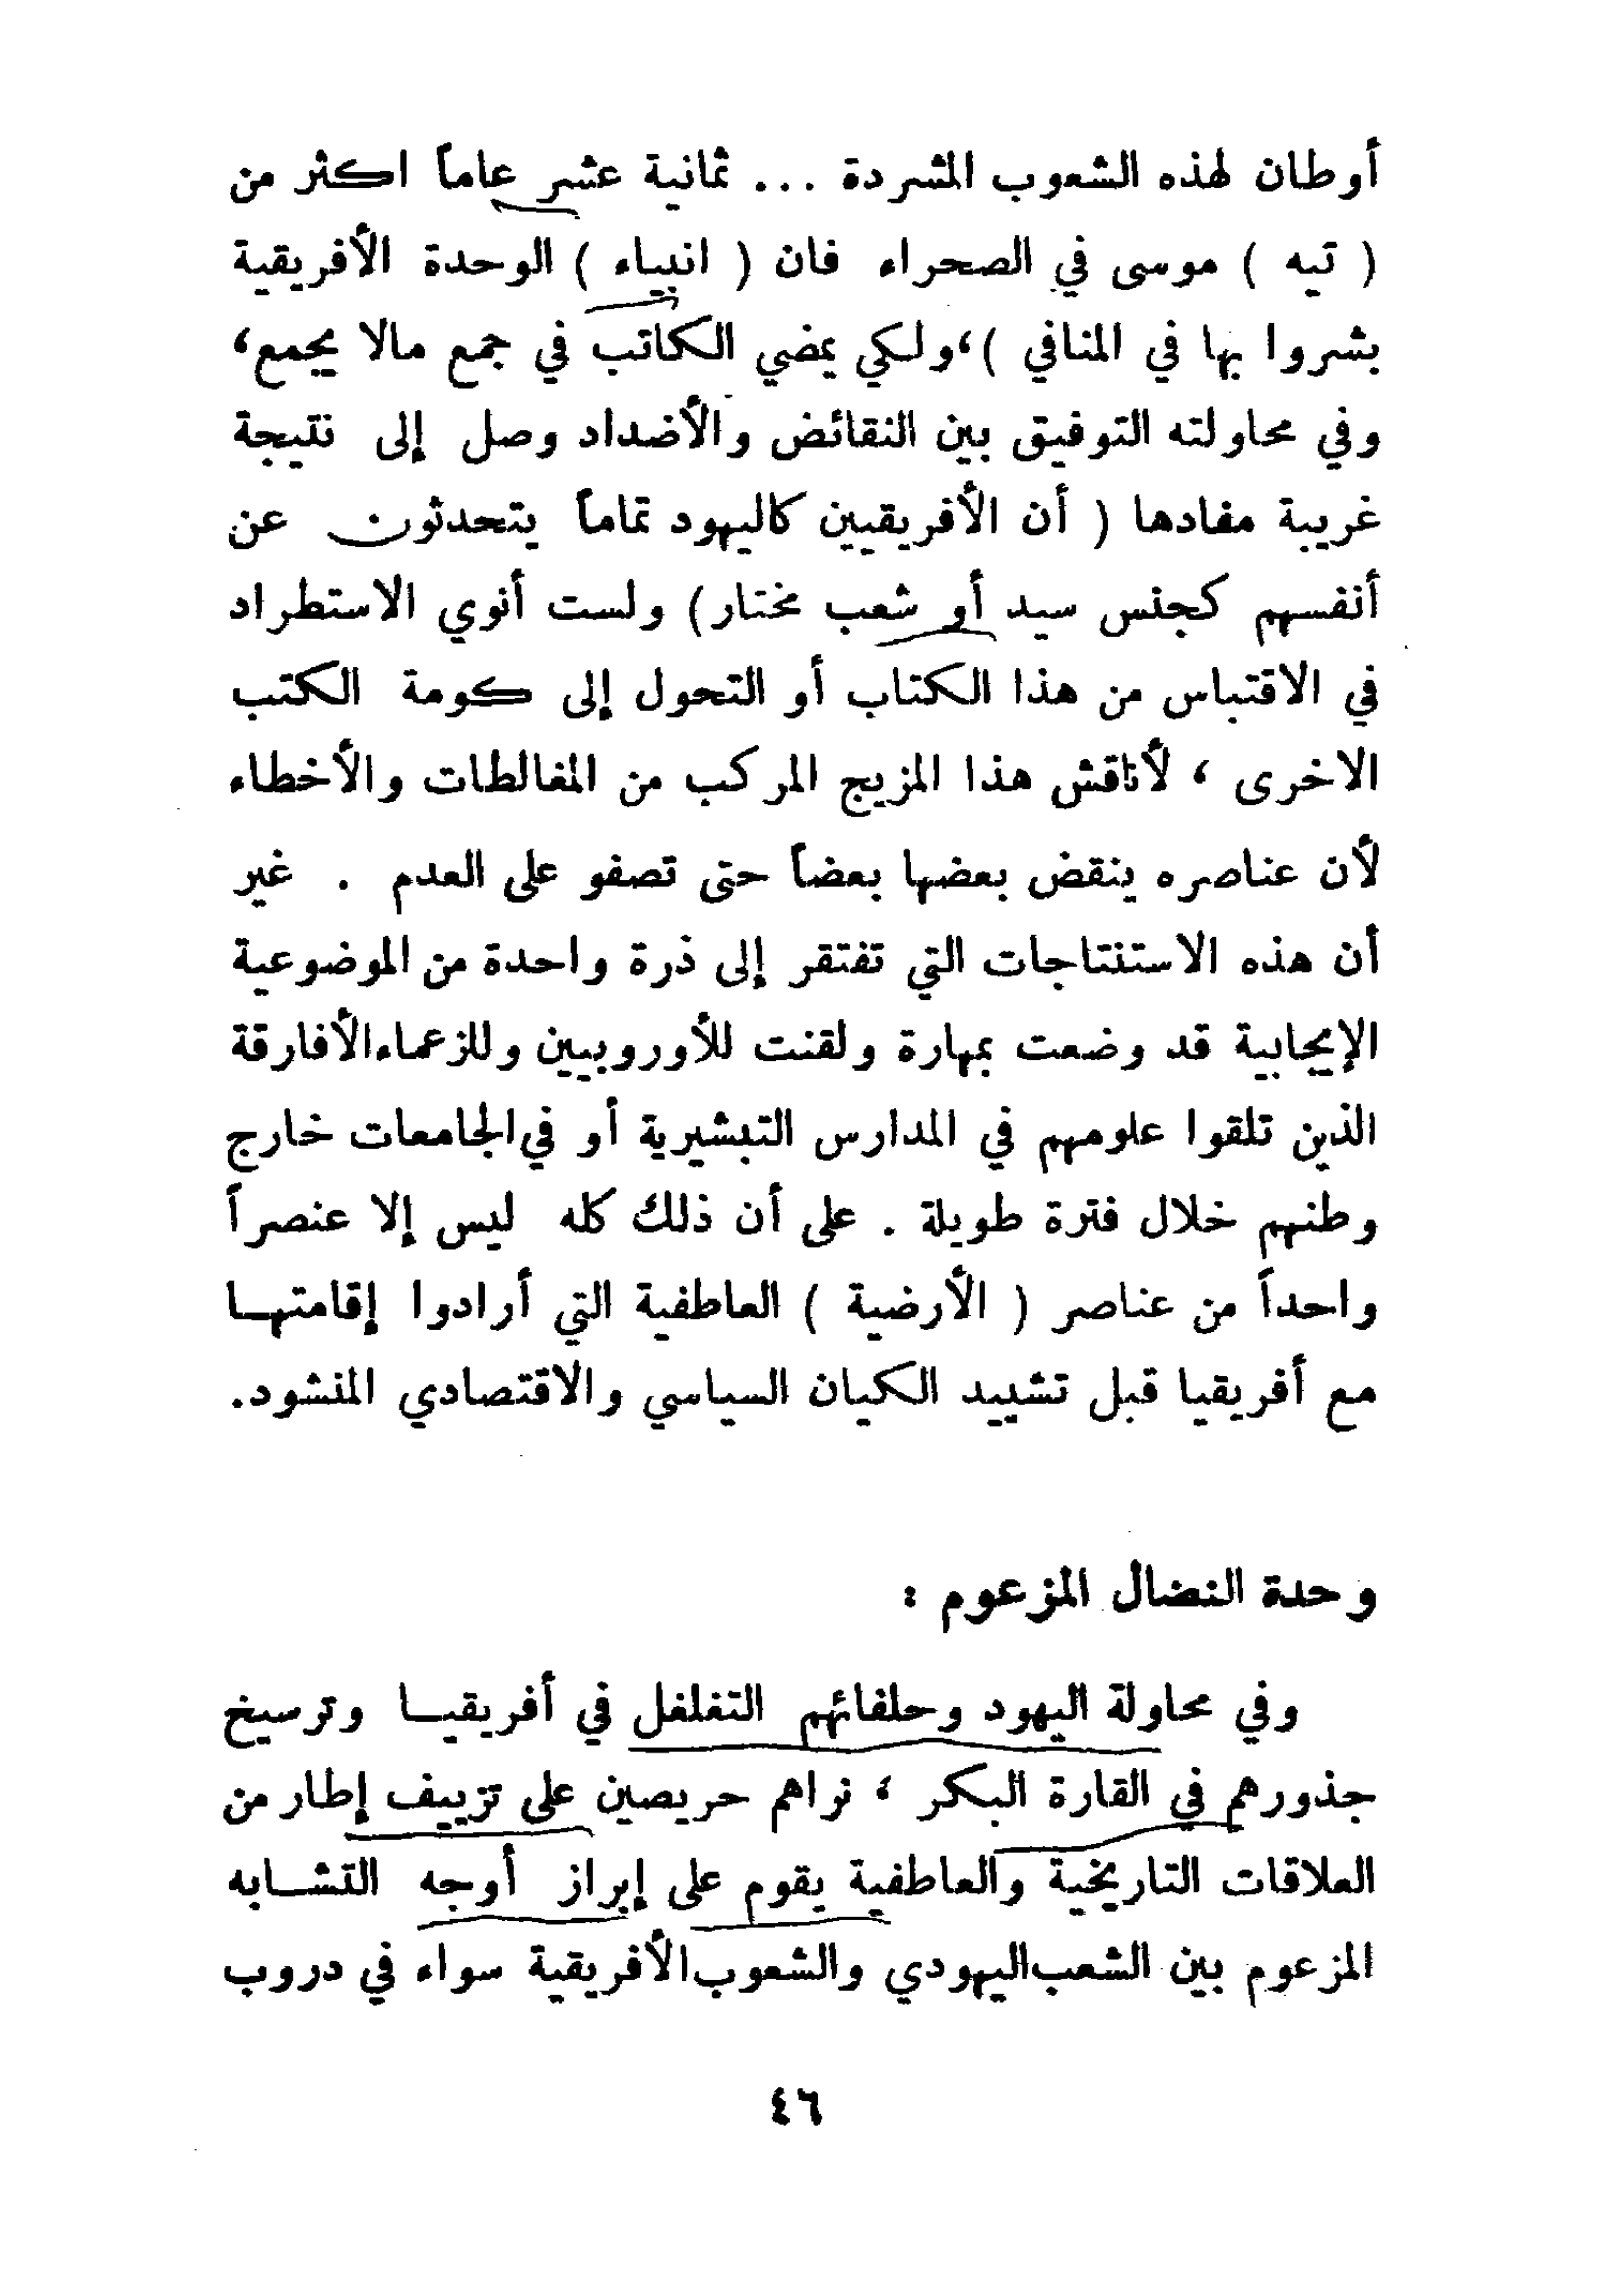 أوطان لهذه الشعوب المشردة ... ثمانية عشر عاماً اكثر من
( تيه ) موسى في الصحراء فان ( انبياء ) الوحدة الأفريقية
بشروا بها في المنافي )،ولكي يمضي الكاتب في جمع مالا يجمع،
وفي محاولته التوفيق بين النقائض والأضداد وصل إلى نتيجة
غريبة مفادها ( أن الأفريقيين كاليهود تماماً يتحدثون عن
أنفسهم كجنس سيد أو شعب مختار) ولست أنوي الاستطراد
في الاقتباس من هذا الكتاب أو التحول إلى كومة الكتب
الاخرى ، لأناقش هذا المزيج المركب من المغالطات والأخطاء
لأن عناصره ينقض بعضها بعضاً حتى تصفو على العدم . غير
أن هذه الاستنتاجات التي تفتقر إلى ذرة واحدة من الموضوعية
الإيجابية قد وضعت بمهارة ولقنت للأوروبيين وللزعماء الأفارقة
الذين تلقوا علومهم في المدارس التبشيرية أو في الجامعات خارج
وطنهم خلال فترة طويلة . على أن ذلك كله ليس إلا عنصراً
واحداً من عناصر ( الأرضية ) العاطفية التي أرادوا إقامتهـا
مع أفريقيا قبل تشييد الكيان السياسي والاقتصادي المنشود.
وحدة النضال المزعوم :
وفي محاولة اليهود وحلفائهم التغلغل في أفريقيـا وترسيخ
جذورهم في القارة البكر ، نراهم حريصين على تزييف إطار من
العلاقات التاريخية والعاطفية يقوم على إبراز أوجه التشـابه
المزعوم بين الشعب اليهودي والشعوب الأفريقية سواء في دروب
٤٦